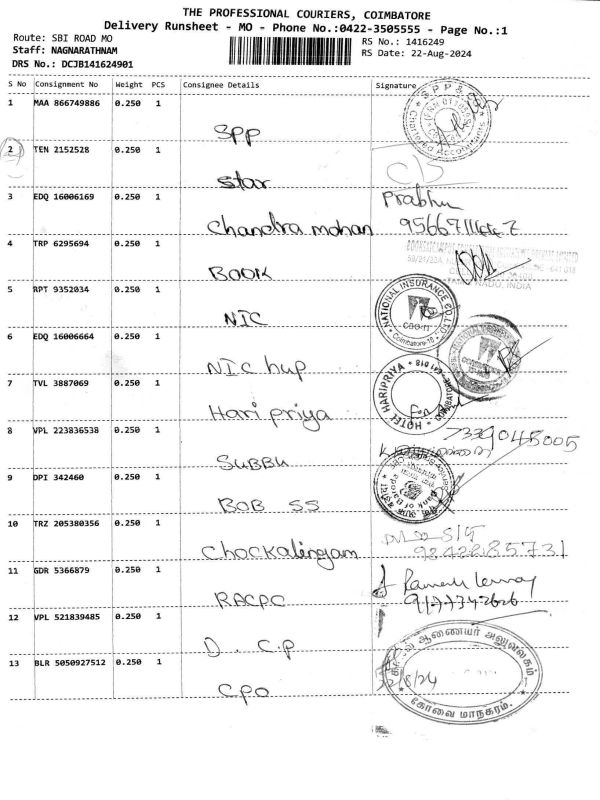 THE PROFESSIONAL COURIERS, COIMBATORE
Delivery Runsheet - MO - Phone No.:0422-3505555 - Page No.:1
Route: SBI ROAD MO
Staff: NAGNARATHNAM
DRS No.: DCJB141624901
RS No.: 1416249
RS Date: 22-Aug-2024
S No Consignment No Weight PCS Consignee Details Signature
1 MAA 866749886 0.250 1
SPP
SPP &
Chartered Accountants
2 TEN 2152528 0.250 1
Star
C/S
3 EDQ 16006169 0.250 1
Chandra mohan
Prabhu
4 TRP 6295694 0.250 1
BOOK
5 RPT 9352034 0.250 1
NIC
NATIONAL INSURANCE CO. LTD.
Coimbatore-18
6 EDQ 16006664 0.250 1
NIC hup
7 TVL 3887069 0.250 1
Hari priya
HOTEL HARIPRIYA
COIMBATORE - 641 018
8 VPL 223836538 0.250 1
SUBBU
7339045005
9 DPI 342460 0.250 1
BOB SS
Bank of Baroda
10 TRZ 205380356 0.250 1
Chockalingam
9842285731
11 GDR 5366879 0.250 1
RACPC
12 VPL 521839485 0.250 1
D. C.P
13 BLR 5050927512 0.250 1
CPO
ஆணையர் அலுவலகம்
8/24
கோவை மாநகரம்.